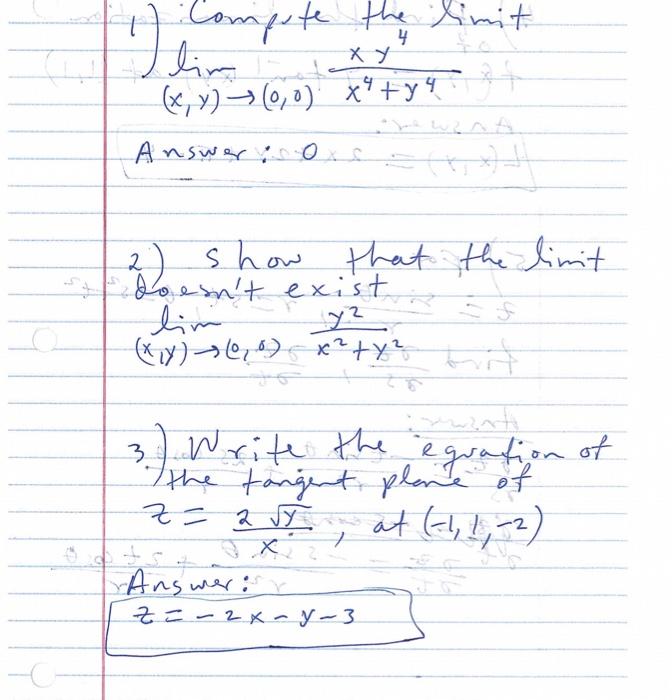 1) Compute the limit
lim xy⁴
(x, y) → (0, 0) x⁴ + y⁴
Answer: 0
2) Show that the limit
doesn't exist
lim y²
(x, y) → (0, 0) x² + y²
3.) Write the equation of
the tangent plane of
z = 2√y / x , at (-1, 1, -2)
Answer:
z = -2x - y - 3